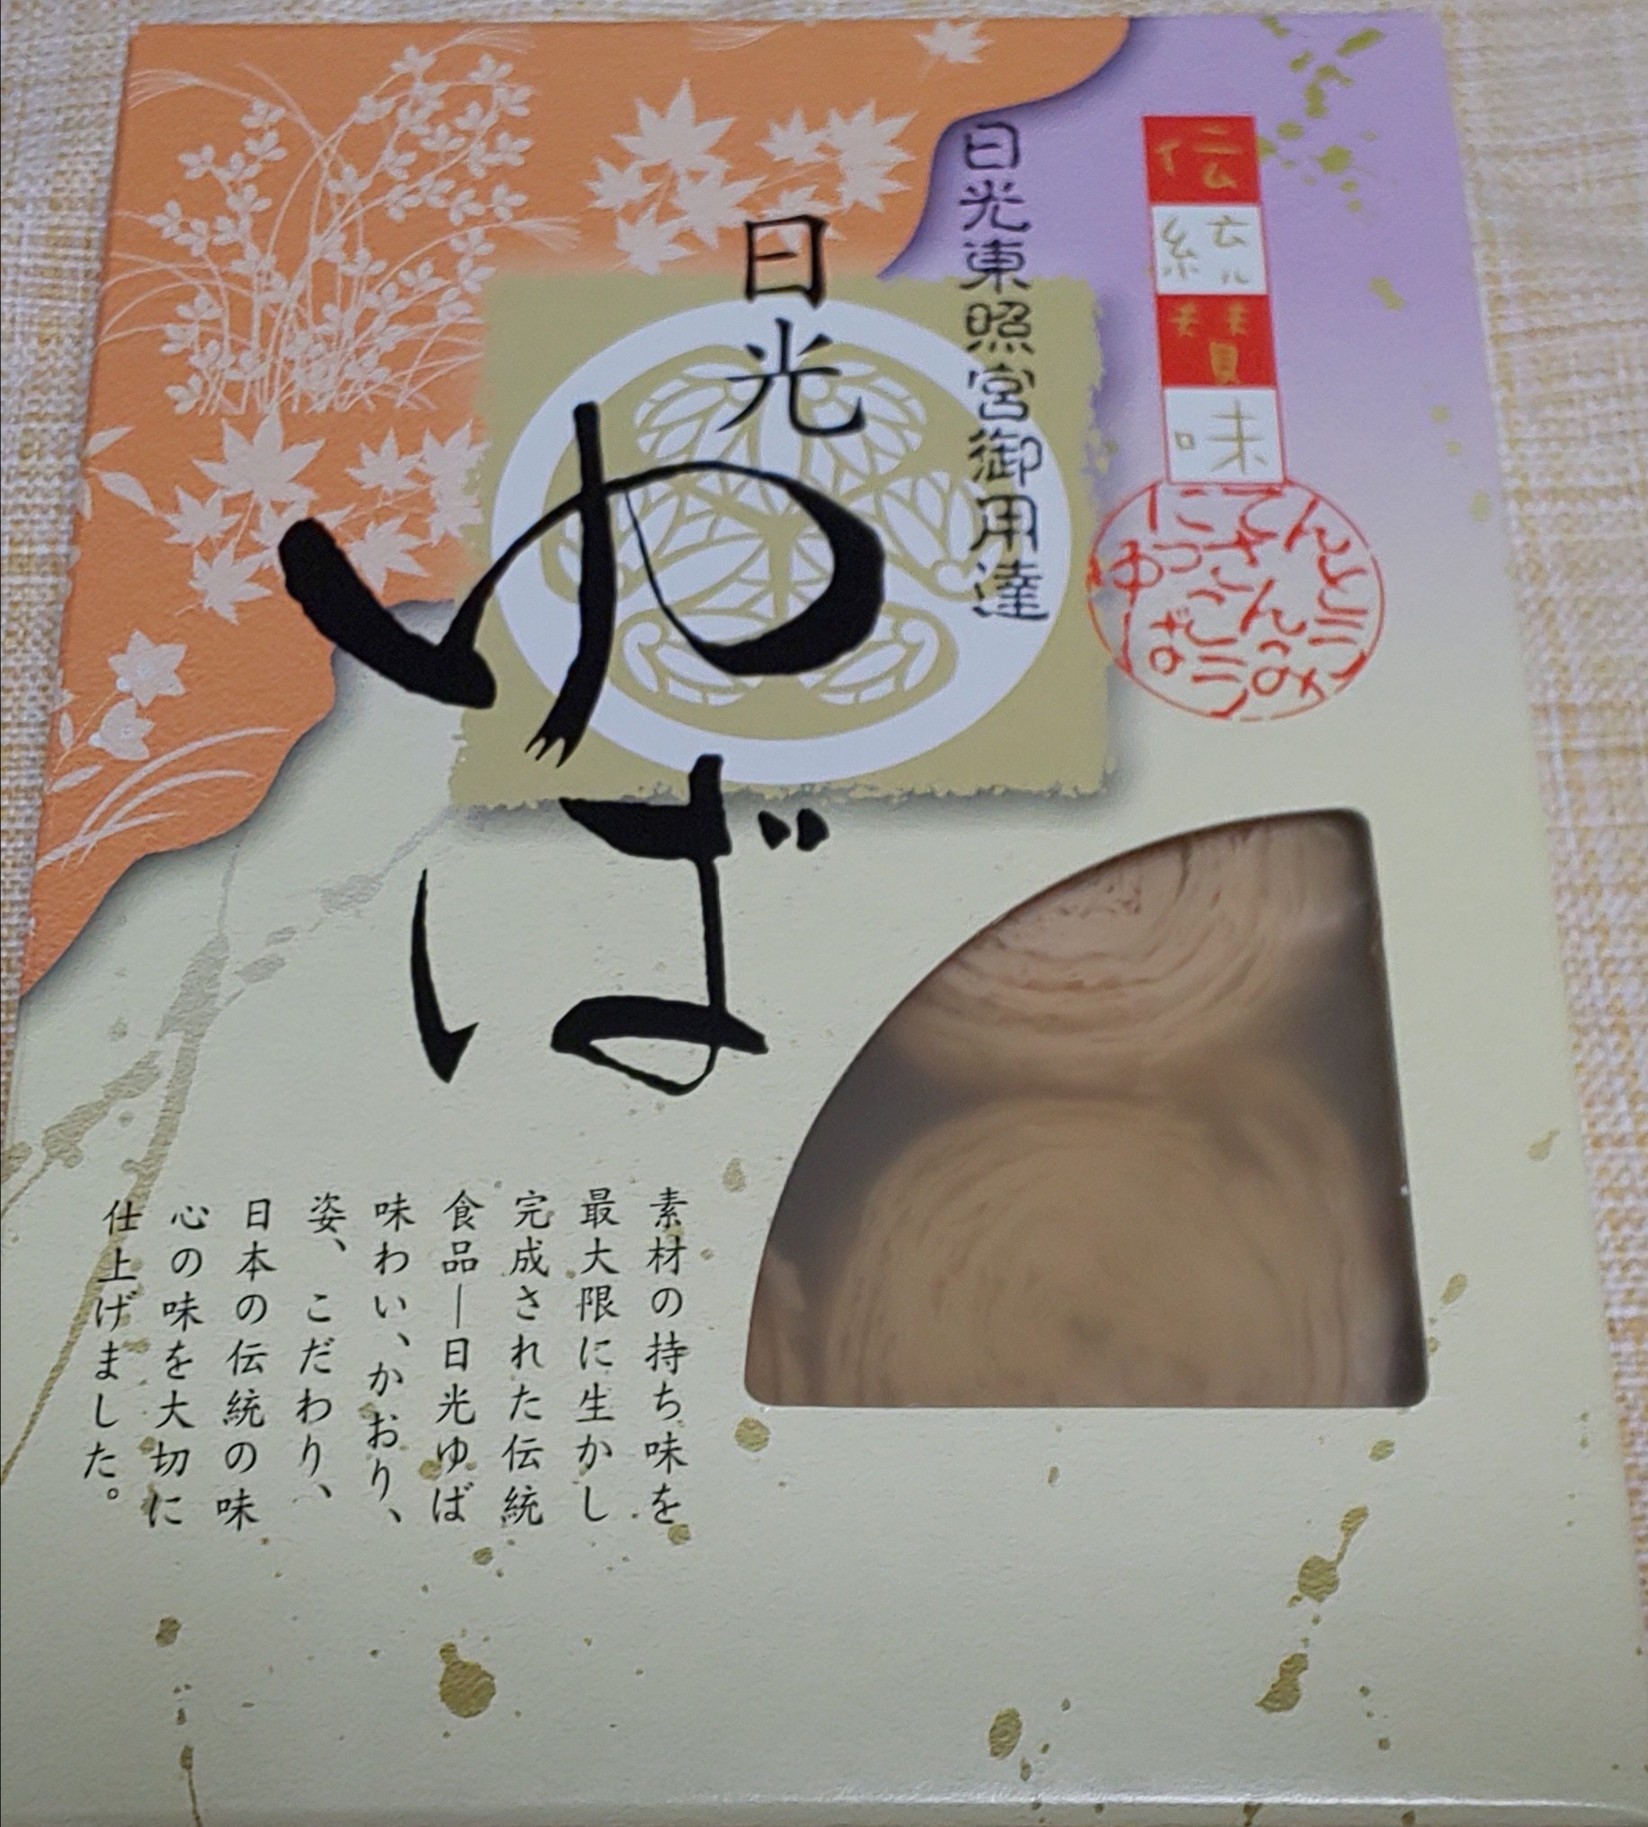 伝統賛味
てんとうさんみにっこうゆば
日光東照宮御用達
日光
ゆば
素材の持ち味を
最大限に生かし
完成された伝統
食品―日光ゆば
味わい、かおり、
姿、こだわり、
日本の伝統の味
心の味を大切に
仕上げました。